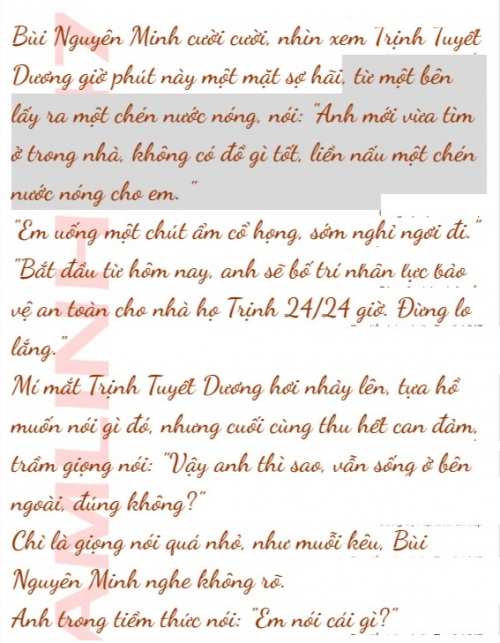 Bùi Nguyên Minh cười cười, nhìn xem Trịnh Tuyết
Dương giờ phút này một mặt sợ hãi, từ một bên
lấy ra một chén nước nóng, nói: "Anh mới vừa tìm
ở trong nhà, không có đồ gì tốt, liền nấu một chén
nước nóng cho em. "
"Em uống một chút ấm cổ họng, sớm nghỉ ngơi đi."
"Bắt đầu từ hôm nay, anh sẽ bố trí nhân lực bảo
vệ an toàn cho nhà họ Trịnh 24/24 giờ. Đừng lo
lắng."
Mí mắt Trịnh Tuyết Dương hơi nhảy lên, tựa hồ
muốn nói gì đó, nhưng cuối cùng thu hết can đảm,
trầm giọng nói: "Vậy anh thì sao, vẫn sống ở bên
ngoài, đúng không?"
Chỉ là giọng nói quá nhỏ, như muỗi kêu, Bùi
Nguyên Minh nghe không rõ.
Anh trong tiềm thức nói: "Em nói cái gì?"
AMLINH